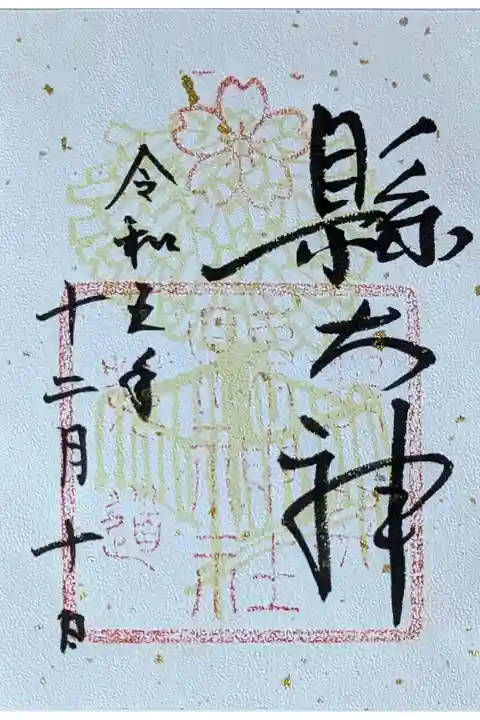 縣大神
令和五年
十二月十日